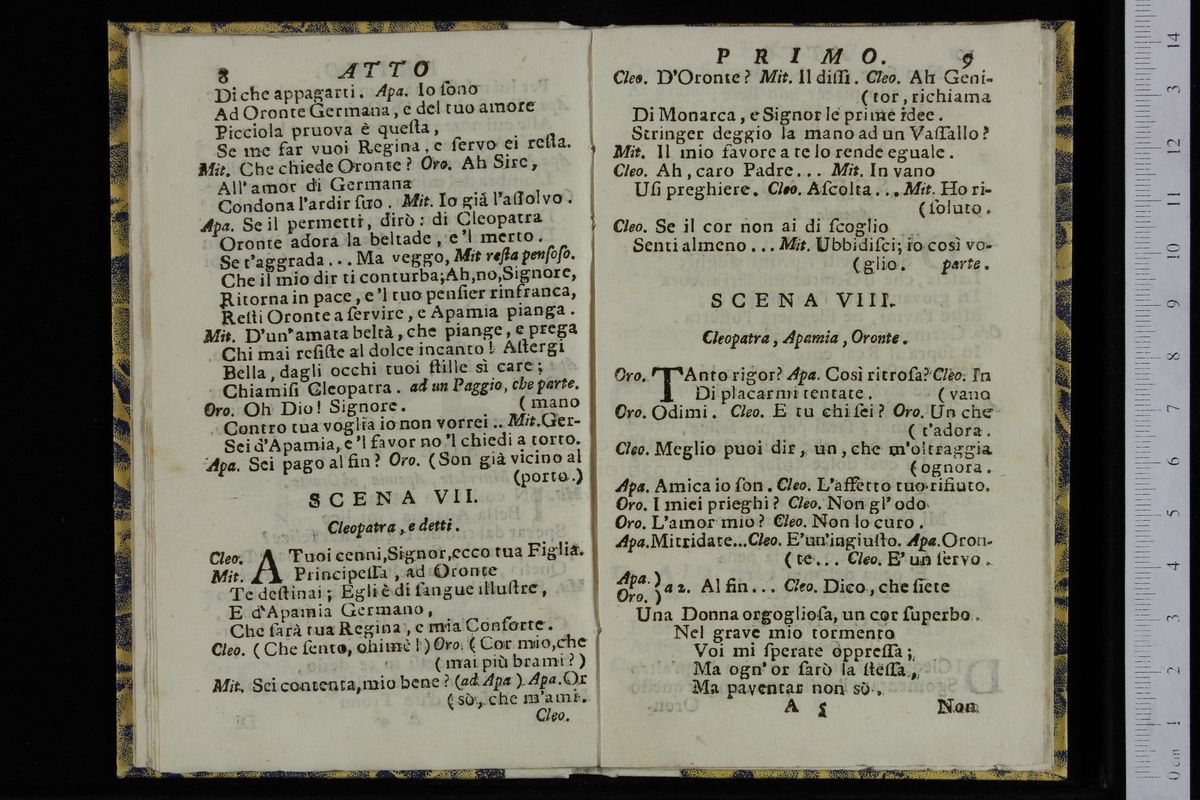 8 ATTO
Di che appagarti. Apa. Io ſono
Ad Oronte Germana, e del tuo amore
Picciola pruova è queſta,
Se me far vuoi Regina, e ſervo ei reſta.
Mit. Che chiede Oronte? Oro. Ah Sire,
All'amor di Germana
Condona l'ardir ſuo. Mit. Io già l'aſſolvo.
Apa. Se il permetti, dirò: di Cleopatra
Oronte adora la beltade, e'l merto.
Se t'aggrada... Ma veggo, Mit reſta penſoſo.
Che il mio dir ti conturba; Ah, no, Signore,
Ritorna in pace, e'l tuo penſier rinfranca,
Reſti Oronte a ſervire, e Apamia pianga.
Mit. D'un'amata beltà, che piange, e prega
Chi mai reſiſte al dolce incanto! Aſtergi
Bella, dagli occhi tuoi ſtille sì care;
Chiamiſi Cleopatra. ad un Paggio, che parte.
Oro. Oh Dio! Signore. (mano
Contro tua voglia io non vorrei.. Mit. Ger-
Sei d'Apamia, e'l favor no'l chiedi a torto.
Apa. Sei pago al fin? Oro. (Son già vicino al
(porto.)
SCENA VII.
Cleopatra, e detti.
Cleo. A Tuoi cenni, Signor, ecco tua Figlia.
Mit. Principeſſa, ad Oronte
Te deſtinai; Egli è di ſangue illuſtre,
E d'Apamia Germano,
Che ſarà tua Regina, e mia Conſorte.
Cleo. (Che ſento, ohimè!) Oro. (Cor mio, che
(mai più brami?)
Mit. Sei contenta, mio bene? (ad Apa) Apa. Or
(sò, che m'ami.
Cleo.
PRIMO. 9
Cleo. D'Oronte? Mit. Il diſſi. Cleo. Ah Geni-
(tor, richiama
Di Monarca, e Signor le prime idee.
Stringer deggio la mano ad un Vaſſallo?
Mit. Il mio favore a te lo rende eguale.
Cleo. Ah, caro Padre... Mit. In vano
Uſi preghiere. Cleo. Aſcolta... Mit. Ho ri-
(ſoluto.
Cleo. Se il cor non ai di ſcoglio
Senti almeno... Mit. Ubbidiſci; io così vo-
(glio. parte.
SCENA VIII.
Cleopatra, Apamia, Oronte.
Oro. TAnto rigor? Apa. Così ritroſa? Cleo. In
Di placarmi tentate. (vano
Oro. Odimi. Cleo. E tu chi ſei? Oro. Un che
(t'adora.
Cleo. Meglio puoi dir, un, che m'oltraggia
(ognora.
Apa. Amica io ſon. Cleo. L'affetto tuo rifiuto.
Oro. I miei prieghi? Cleo. Non gl'odo
Oro. L'amor mio? Cleo. Non lo curo.
Apa. Mitridate... Cleo. E' un'ingiuſto. Apa. Oron-
(te... Cleo. E' un ſervo.
Apa. )
Oro. ) a 2. Al fin... Cleo. Dico, che ſiete
Una Donna orgoglioſa, un cor ſuperbo.
Nel grave mio tormento
Voi mi ſperate oppreſſa;
Ma ogn'or ſarò la ſteſſa,
Ma paventar non sò.
A 5 Non